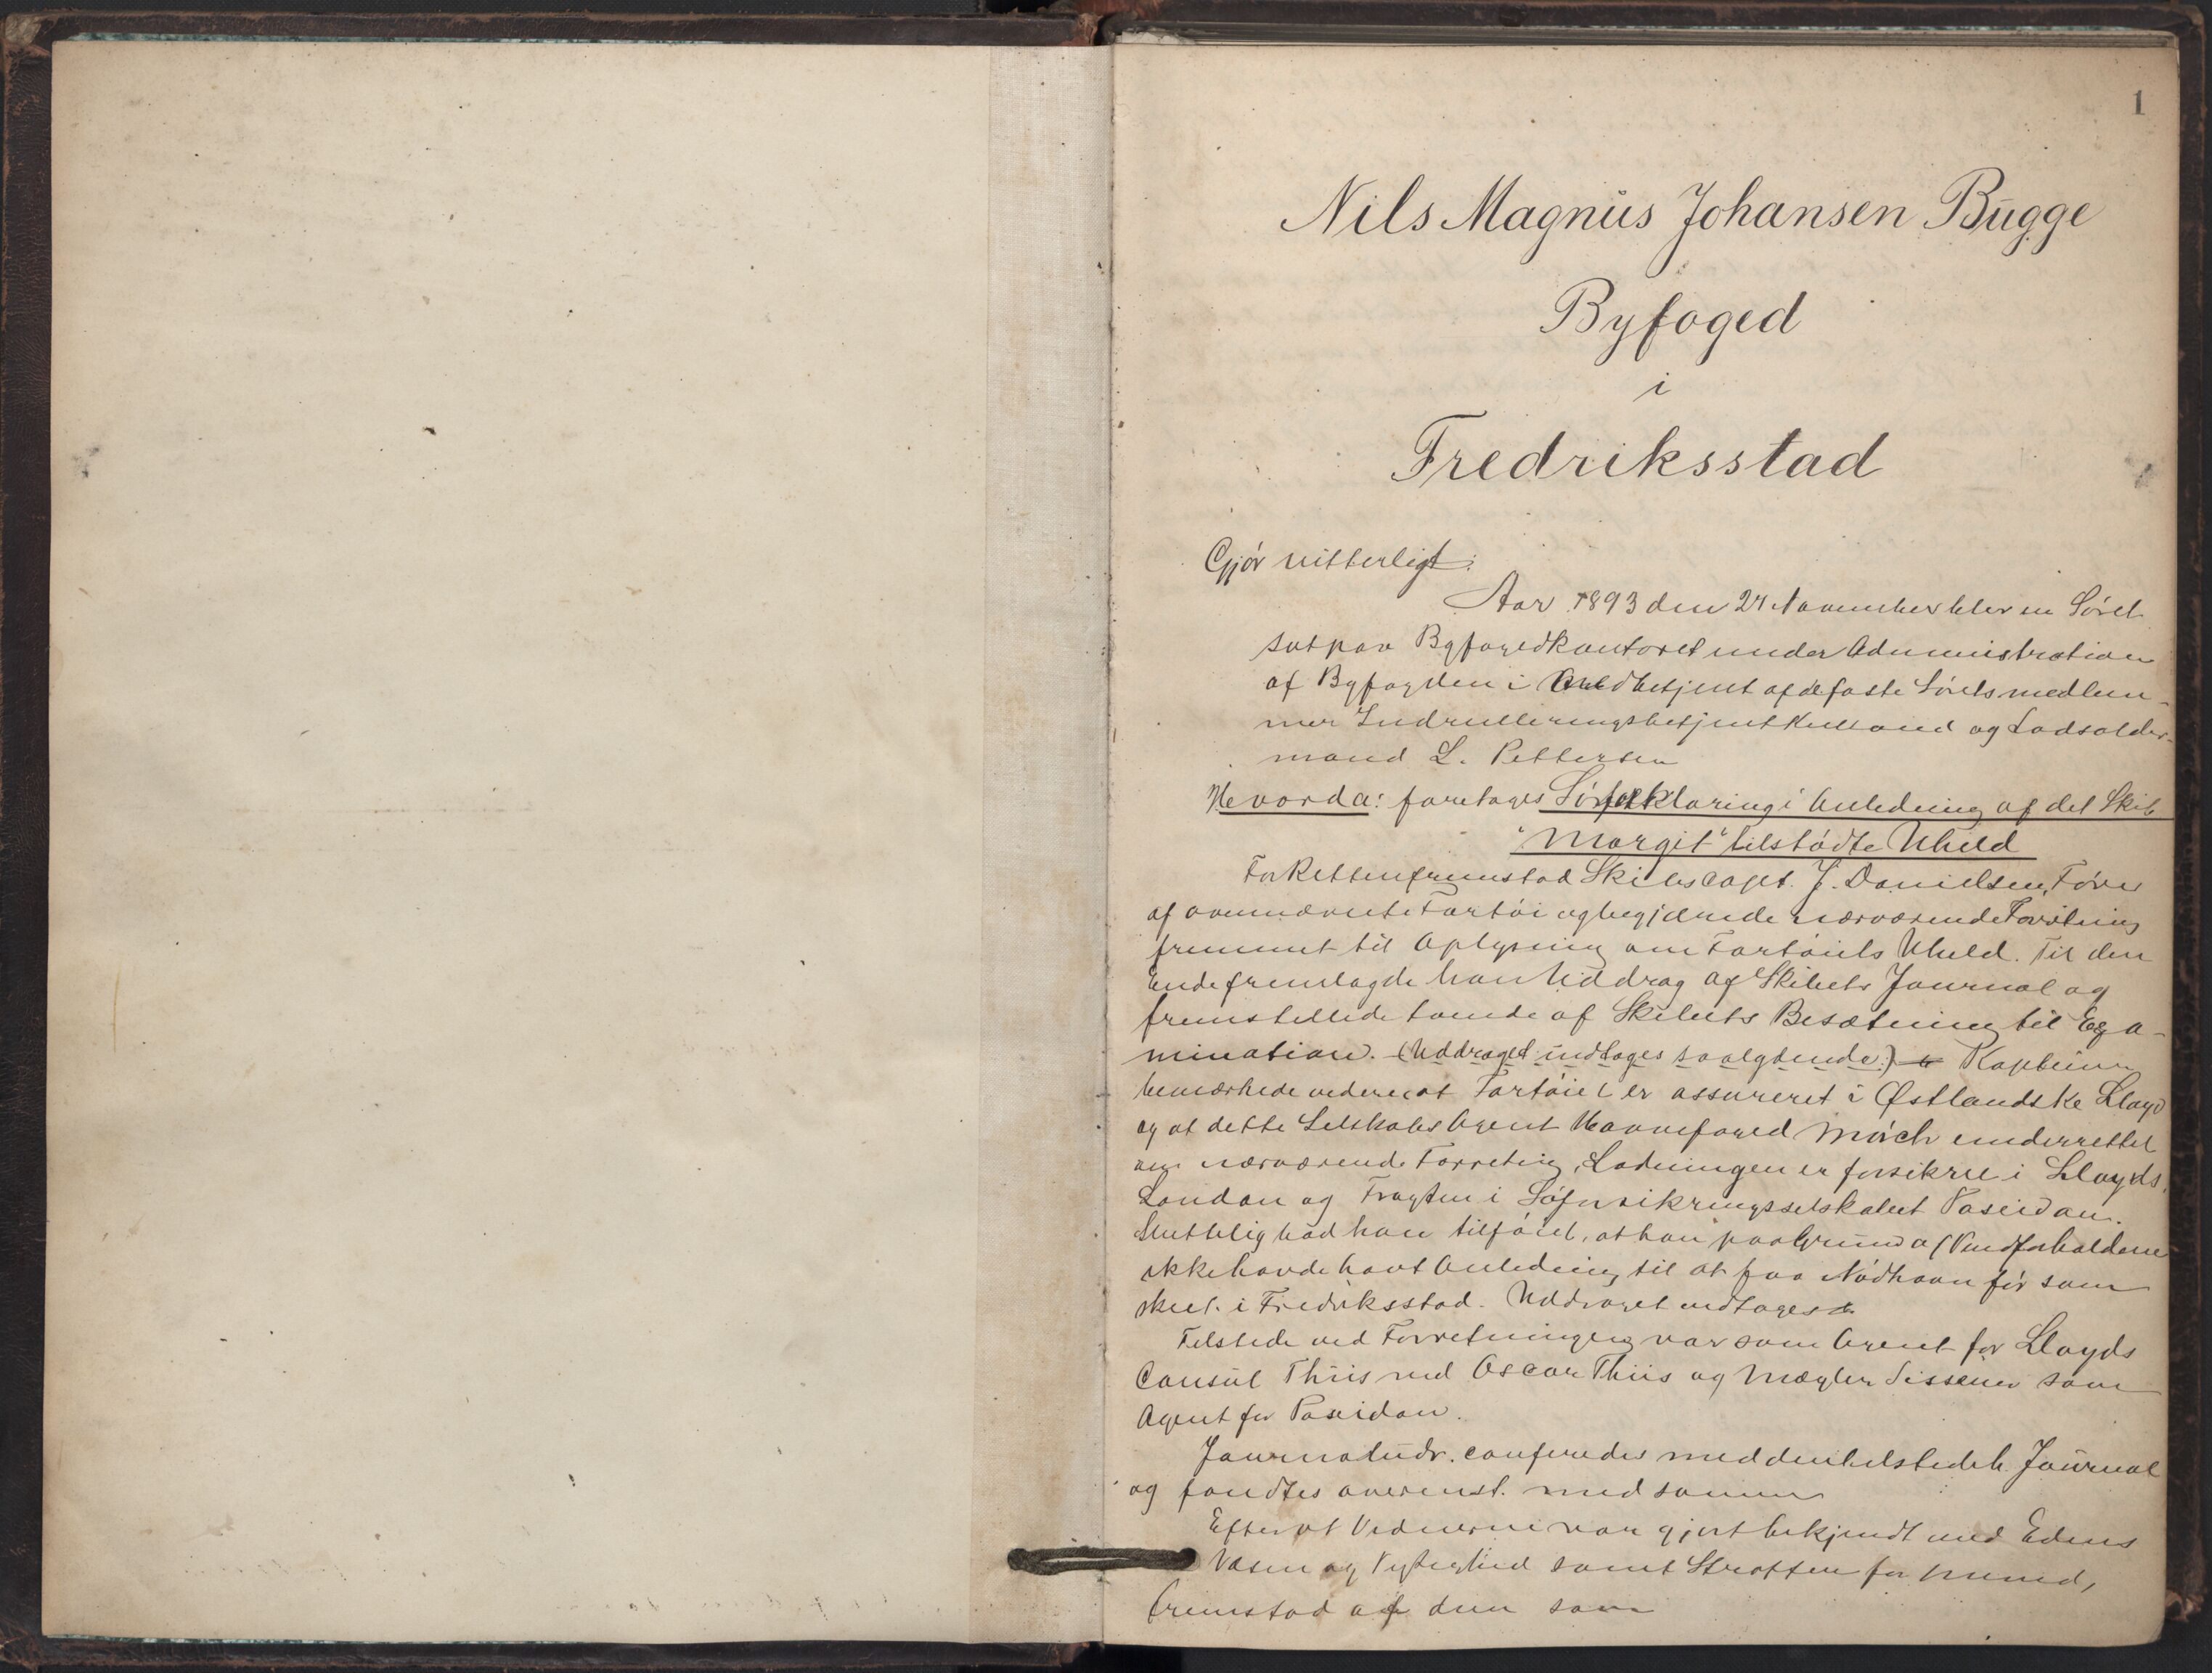 1
Nils Magnus Johansen Bugge
Byfoged
i
Fredriksstad
Gjör vitterligt:
Aar 1893 den 24 November blev en Söret
sat paa Byfogedkontoret under Administration
af Byfogden i betjent af de faste Söretsmedlem-
mer Indrulleringsbetjent og Lodsolder-
mand L. Pettersen
Hvorda: foretages Söforklaring i Anledning af det Skib
"Margit" tilstödte Uheld
For Retten fremstod Skibscapt. J. Danielsen, Förer
af ovennævnte Fartöi og begjærede nærværende Forretning
fremmet til Oplysning om Fartöiets Uheld. Til den
Ende fremlagde han Uddrag af Skibets Journal og
fremstillede tvende af Skibets Besætning til Exa-
mination. (Uddraget indtages saalydende.) Kapteinen
bemærkede videre, at Fartöiet er assureret i Østlandske Lloyd
og at dette Selskabs Agent Havnefoged Mörch underrettet
om nærværende Forretnig, Ladningen er forsikret i Lloyds,
London og Fragten i Söforsikringsselskabet Poseidon.
Sluttelig bad han tilföiet, at han paa Grund af Vindforholdene
ikke havde havt Anledning til at faa Nödhavn för som
skeet i Fredriksstad. Uddraget indtages
Tilstede ved Forretningen var som Agent for Lloyds
Consul Thiis ved Oscar Thiis og Mægler Sissener som
Agent for Poseidon.
Journaludr. confereredes med den tilstedeb. Journal
og fandtes overenst. med samme
Efter at Vidnerne var gjort bekjendt med Edens
Væsen og Vigtighed samt Straffen for Mened,
fremstod af dem som